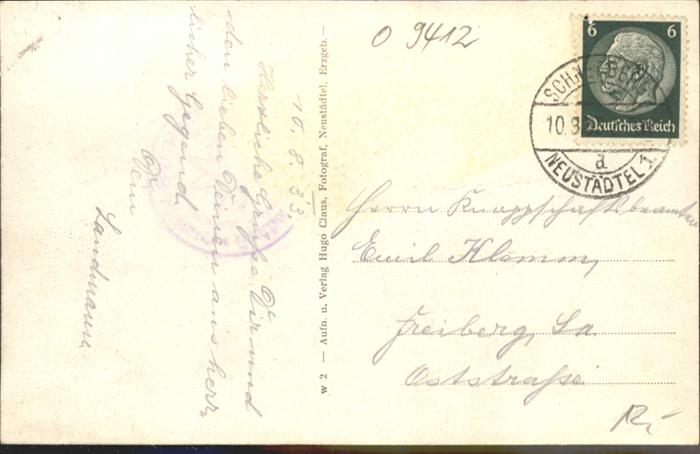 O 9412
6 6
Deutsches Reich
SCHNEEBERG
10.8
a
NEUSTÄDTEL 1
10. 8. 33.
Herzliche Grüße Dir und
den lieben Deinen aus herr,
licher Gegend.
Dein
Landmann
w 2 — Aufn. u. Verlag Hugo Claus, Fotograf, Neustädtel, Erzgeb. —
Herrn Knappschaftsbeamten
Emil Klemm,
Freiberg, Sa
Oststraße